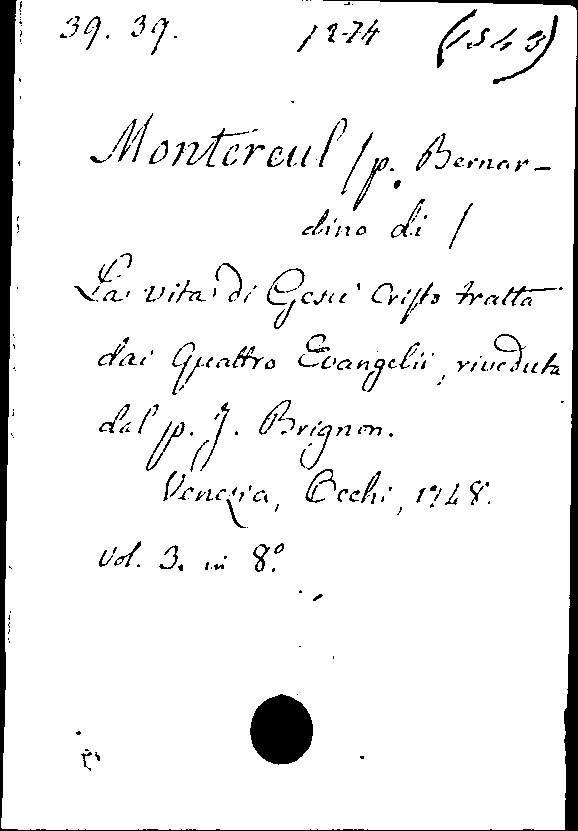 39. 39. 1274 (1543)
Montereul / p. Bernar-
dino di /
La vita di Gesù Cristo tratta
dai Quattro Evangelii, riveduta
dal p. J. Brignon.
Venezia, Occhi, 1748.
Vol. 3. in 8º.